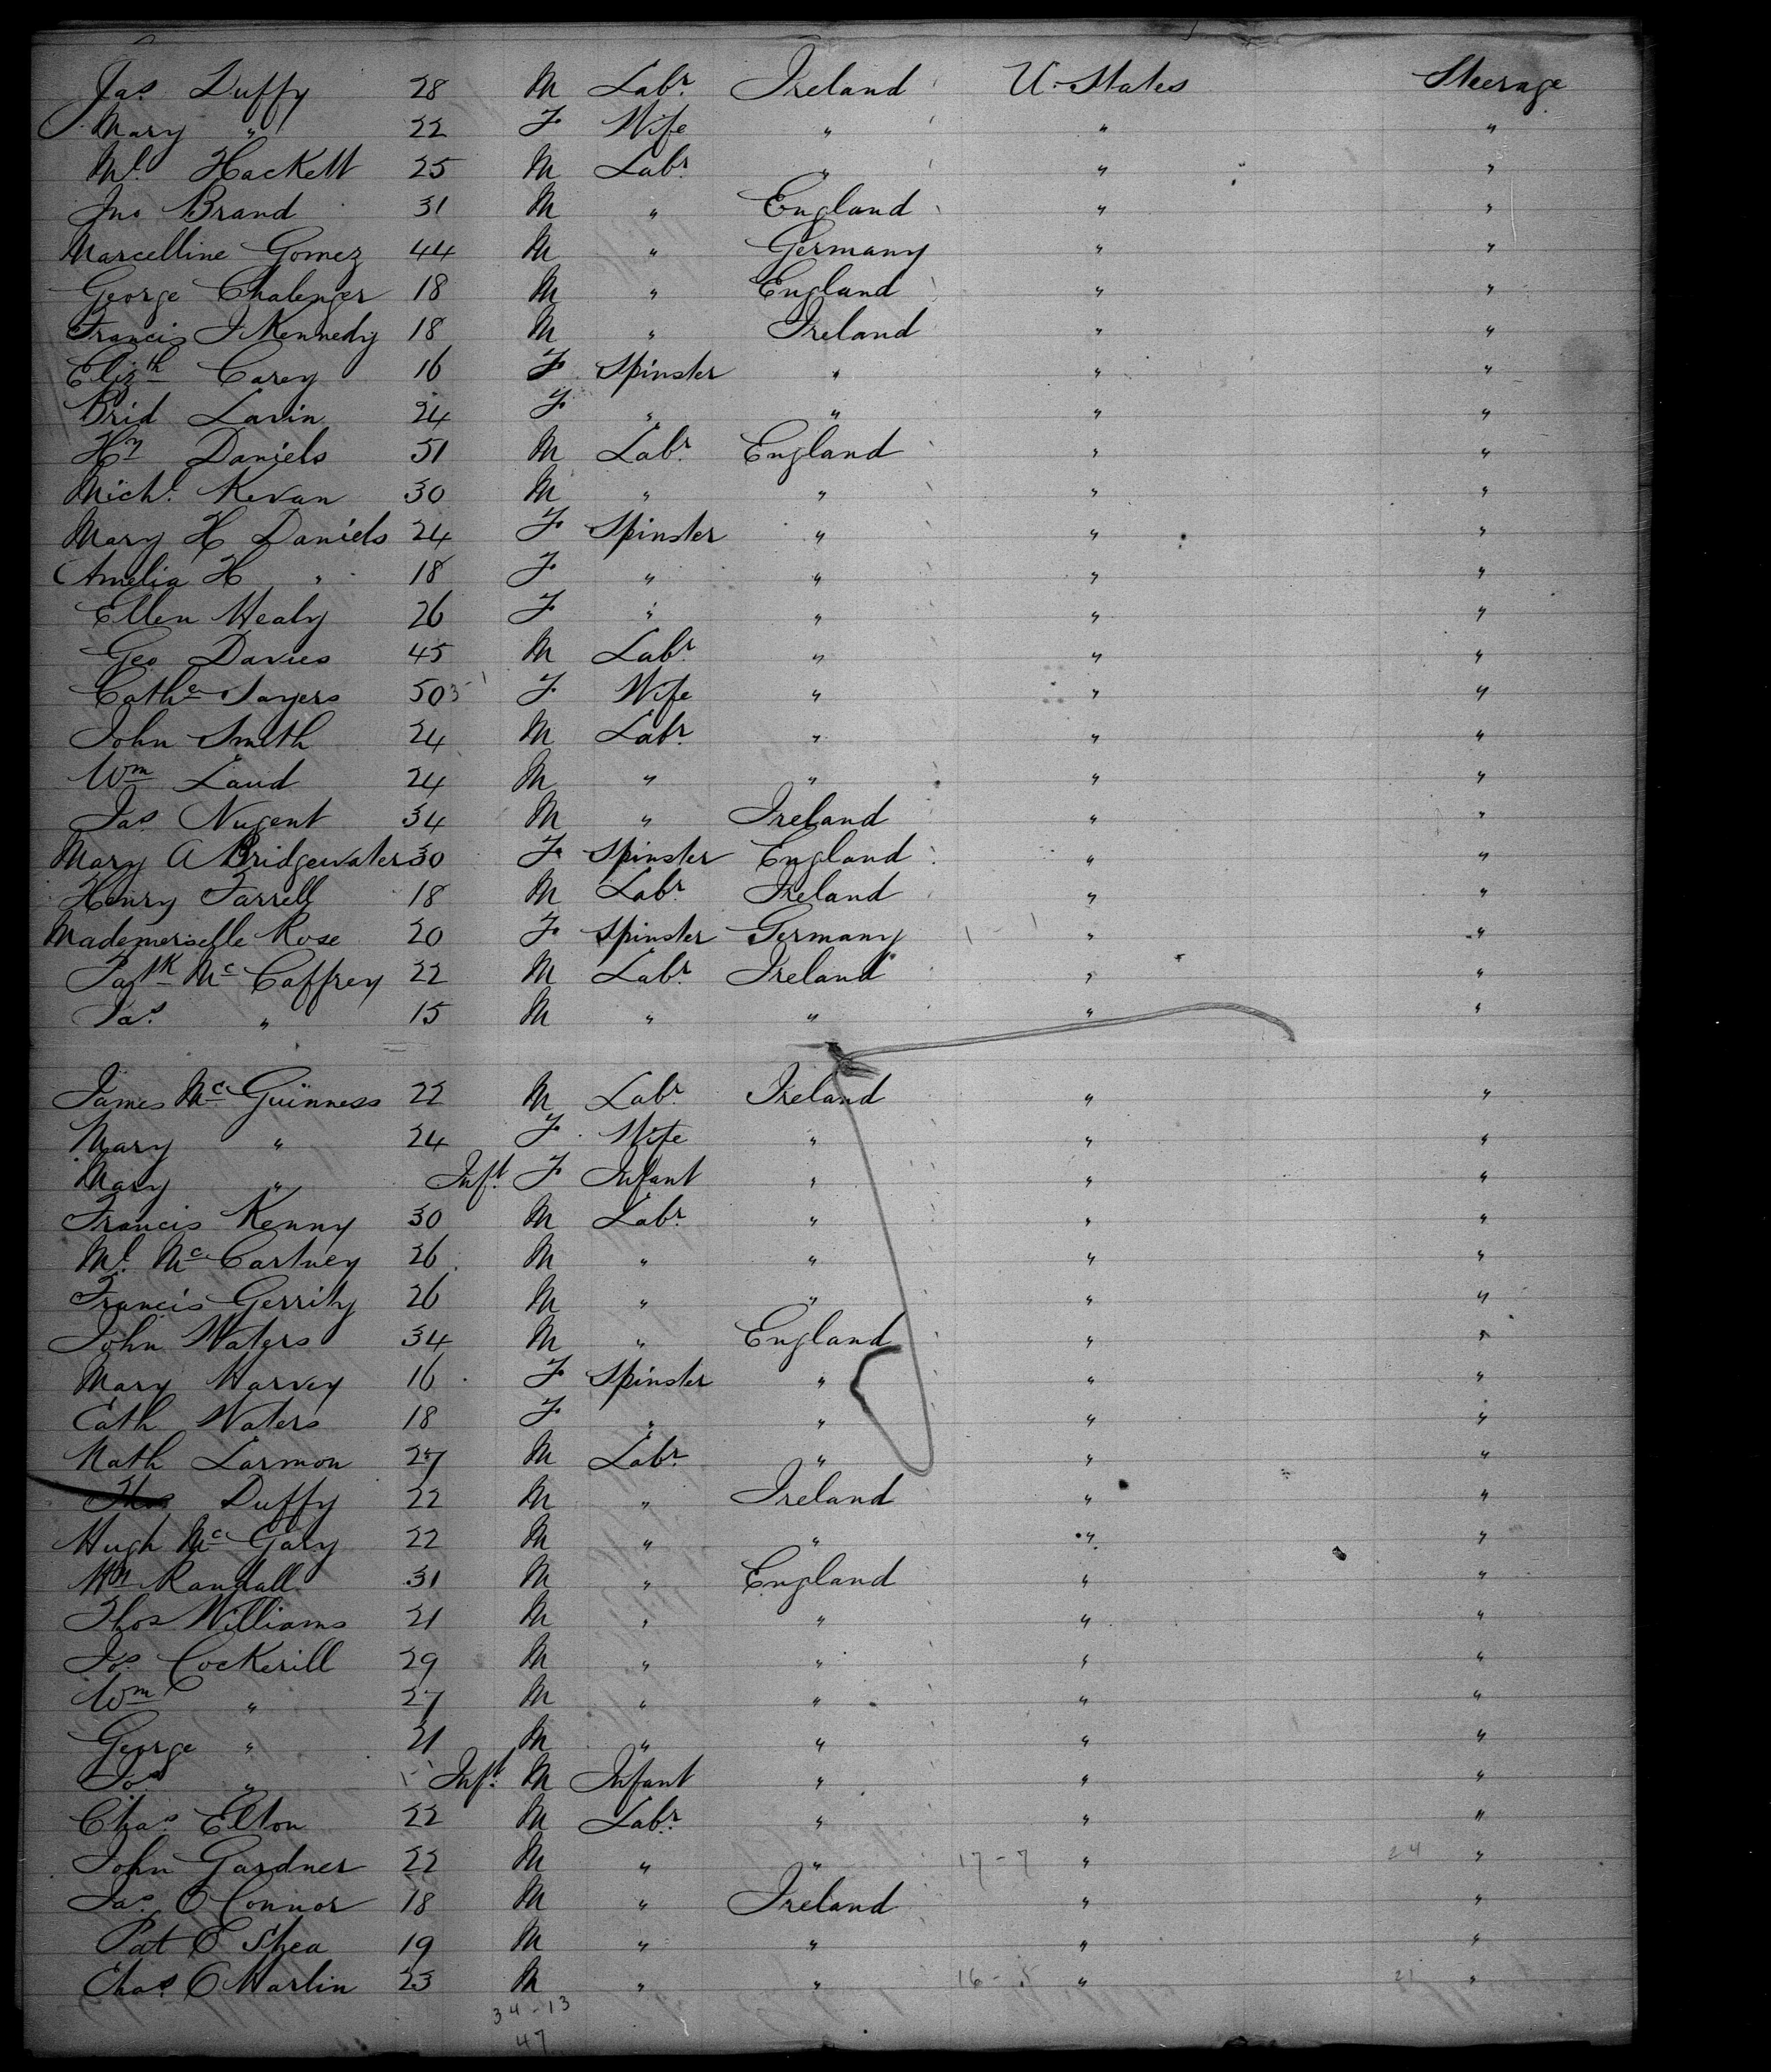 Jas. Duffy 28 M Labr. Ireland U. States Steerage
Mary " 22 F Wife " " "
Ml. Hackett 25 M Labr. " " "
Jno Brand 31 M " England " "
Marcelline Gomez 44 M " Germany " "
George Chalenger 18 M " England " "
Francis J Kennedy 18 M " Ireland " "
Elizth Carey 16 F Spinster " " "
Brid Lavin 24 F " " " "
Hy Daniels 51 M Labr. England " "
Michl. Kevan 30 M " " " "
Mary H Daniels 24 F Spinster " " "
Amelia H " 18 F " " " "
Ellen Healy 26 F " " " "
Geo Davies 45 M Labr. " " "
Cathe Sayers 50 F Wife " " "
John Smith 24 M Labr. " " "
Wm Laud 24 M " " " "
Jas. Nugent 34 M " Ireland " "
Mary A Bridgewater 30 F Spinster England " "
Henry Farrell 18 M Labr. Ireland " "
Mademerselle Rose 20 F Spinster Germany " "
Patk Mc Caffrey 22 M Labr. Ireland " "
Jas. " 15 M " " " "
James Mc Guinness 22 M Labr. Ireland " "
Mary " 24 F Wife " " "
Mary " Inft. F Infant " " "
Francis Kenny 30 M Labr. " " "
Ml. Mc Cartney 26 M " " " "
Francis Gerrity 26 M " " " "
John Waters 34 M " England " "
Mary Harvey 16 F Spinster " " "
Cath Waters 18 F " " " "
Nath Larmon 27 M Labr. " " "
Thos Duffy 22 M " Ireland " "
Hugh Mc Gary 22 M " " " "
Wm Randall 31 M " England " "
Thos Williams 21 M " " " "
Jos. Cockerill 29 M " " " "
Wm " 27 M " " " "
George " 21 M " " " "
Jos. " Inft. M Infant " " "
Chas. Elton 22 M Labr. " " "
John Gardner 22 M " " 17-7 " 24 "
Jas. O Connor 18 M " Ireland " "
Pat O Shea 19 M " " " "
Chas. O Martin 23 M " " 16- " 21 "
34-13
47